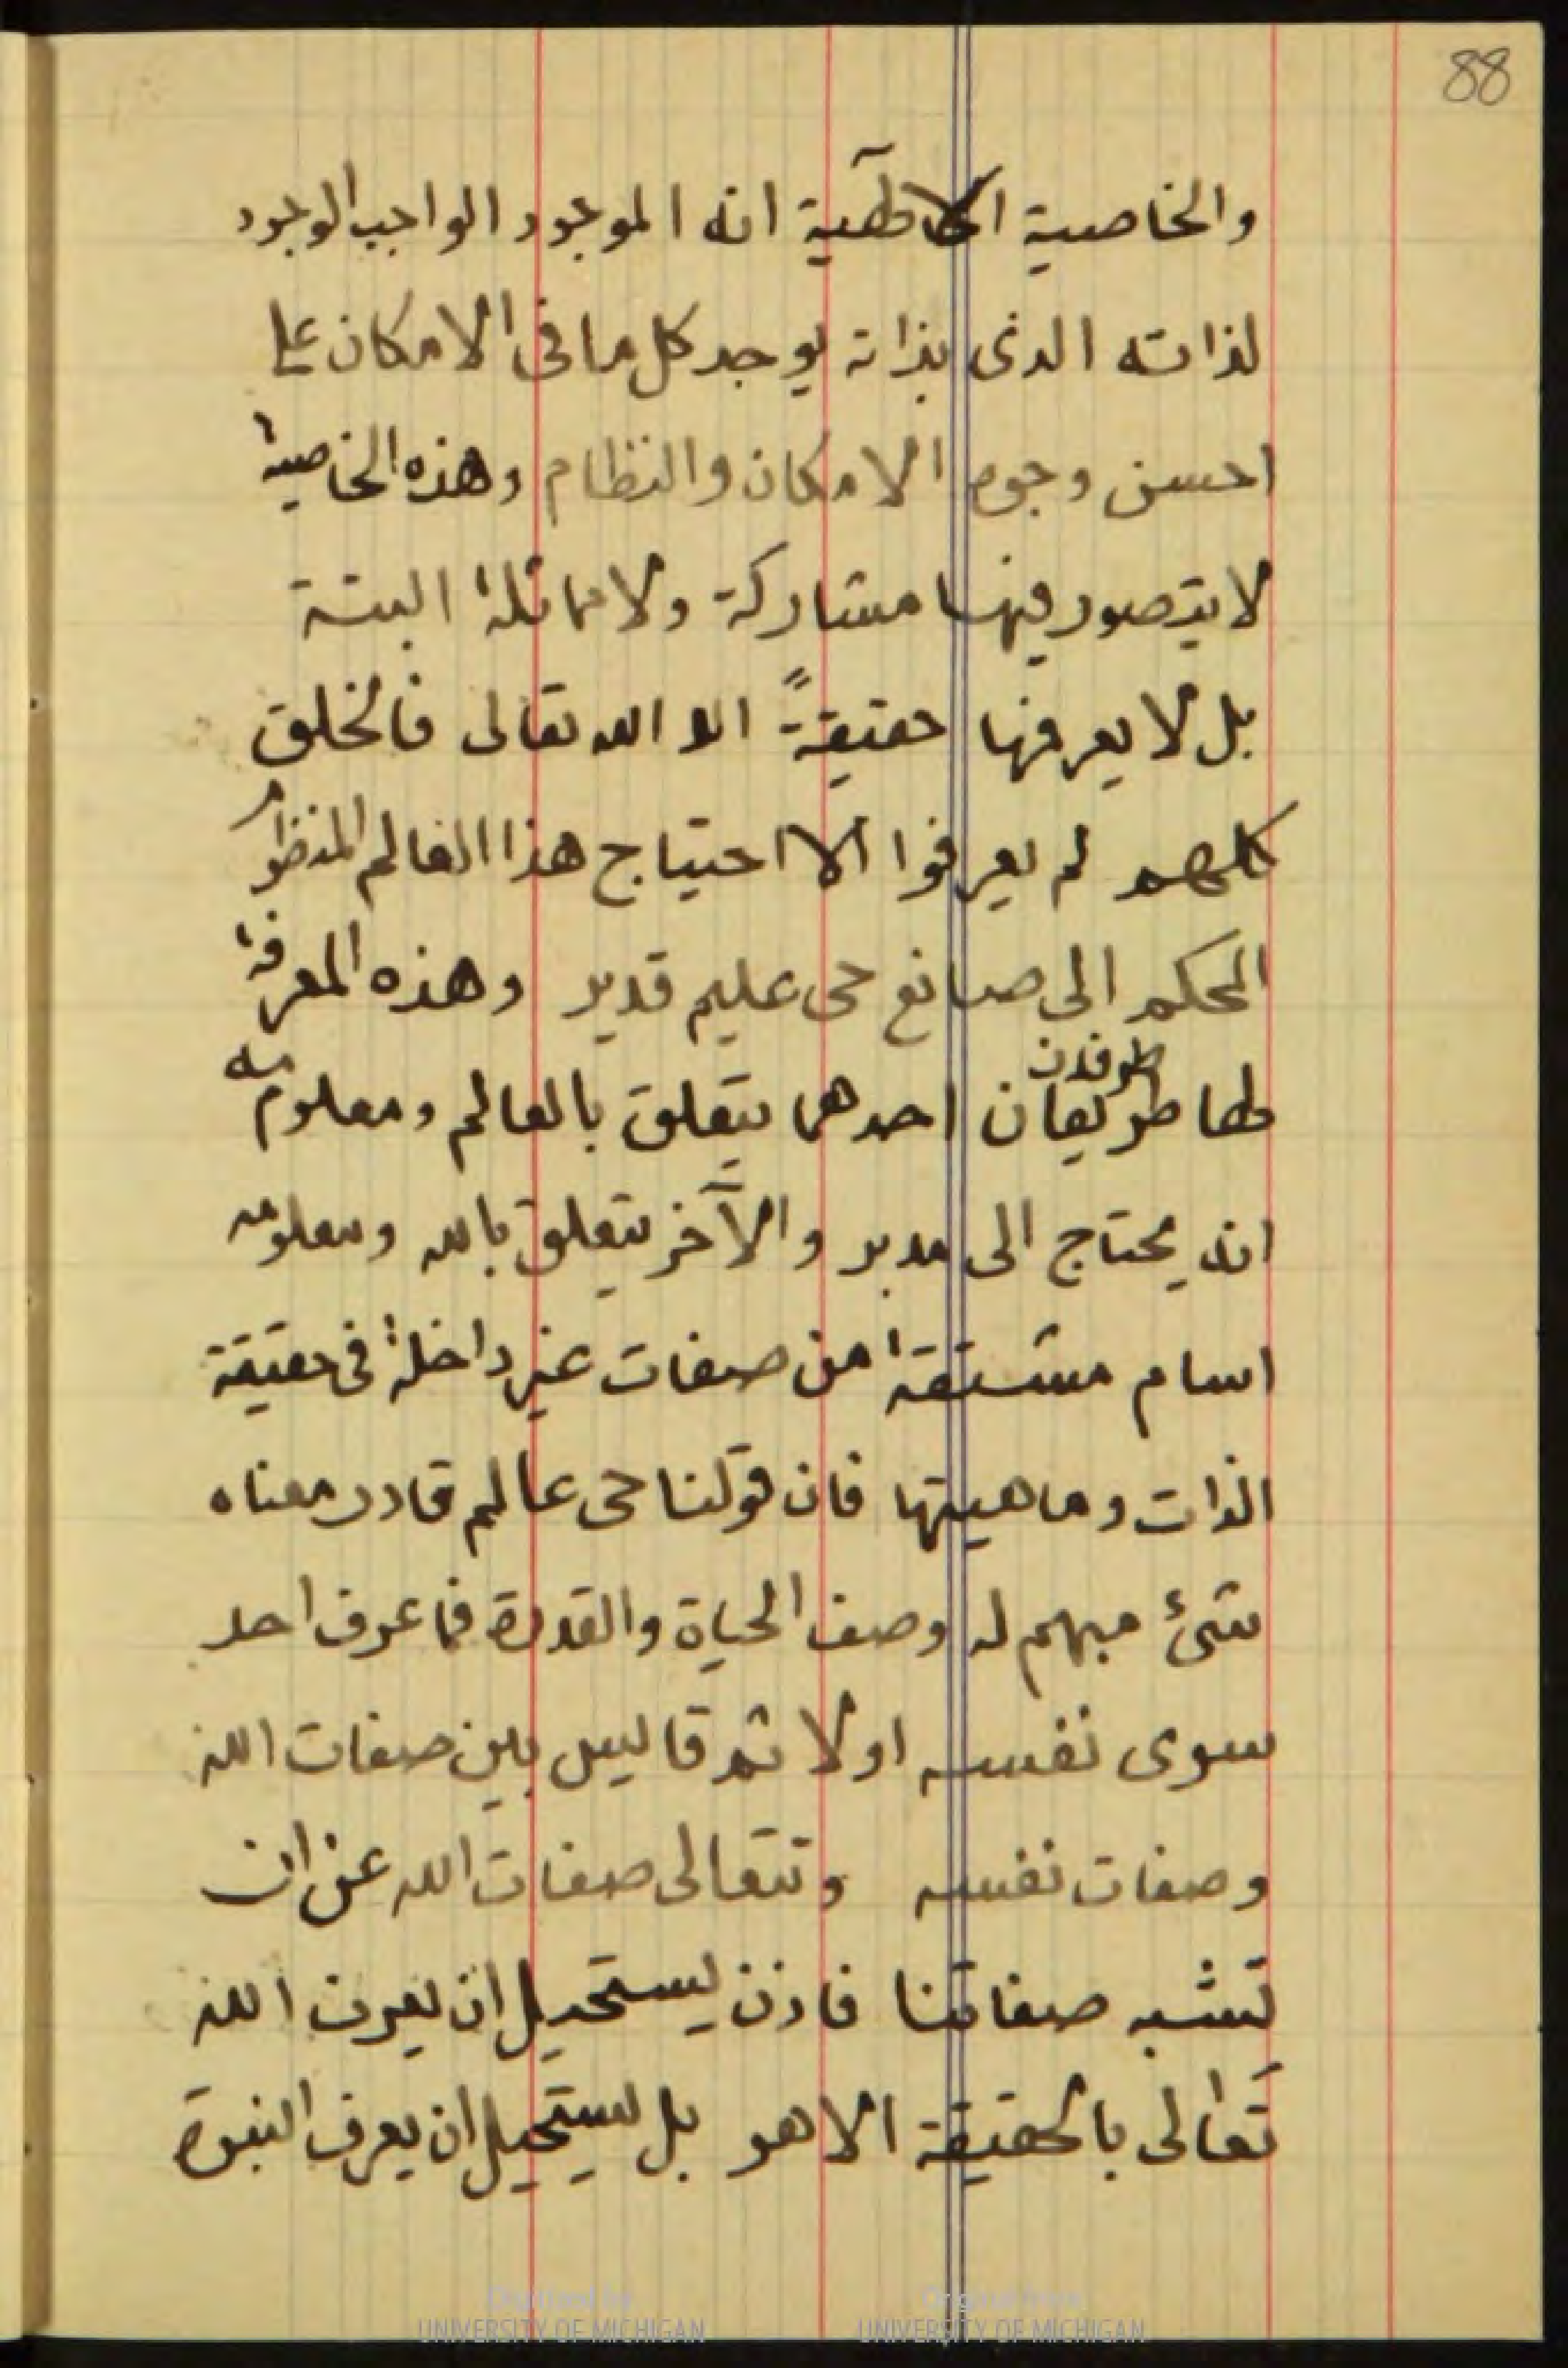 88
والخاصية الالهية انه الموجود الواجب الوجود
لذاته الذى بذاته يوجد كل ما فى الامكان على
احسن وجوه الامكان والنظام وهذه الخاصية
لا يتصور فيها مشاركة ولا مماثلة البتة
بل لا يعرفها حقيقةً الا الله تعالى فالخلق
كلهم لم يعرفوا الا احتياج هذا العالم المنظور
المحكم الى صانع حى عليم قدير وهذه المعرفة
طرفان
لها طريقان احدهما يتعلق بالعالم ومعلومه
انه يحتاج الى مدبر والآخر يتعلق بالله ومعلومه
اسام مشتقة من صفات غير داخلة فى حقيقة
الذات وماهيتها فان قولنا حى عالم قادر معناه
شئ مبهم له وصف الحياة والقدرة فما عرف احد
سوى نفسه اولا ثم قاليس بين صفات الله
وصفات نفسه وتتعالى صفات الله عن ان
تشبه صفاتنا فاذن يستحيل ان يعرف الله
تعالى بالحقيقة الا هو بل يستحيل ان يعرف النبوة
Digitized by
UNIVERSITY OF MICHIGAN
Original from
UNIVERSITY OF MICHIGAN